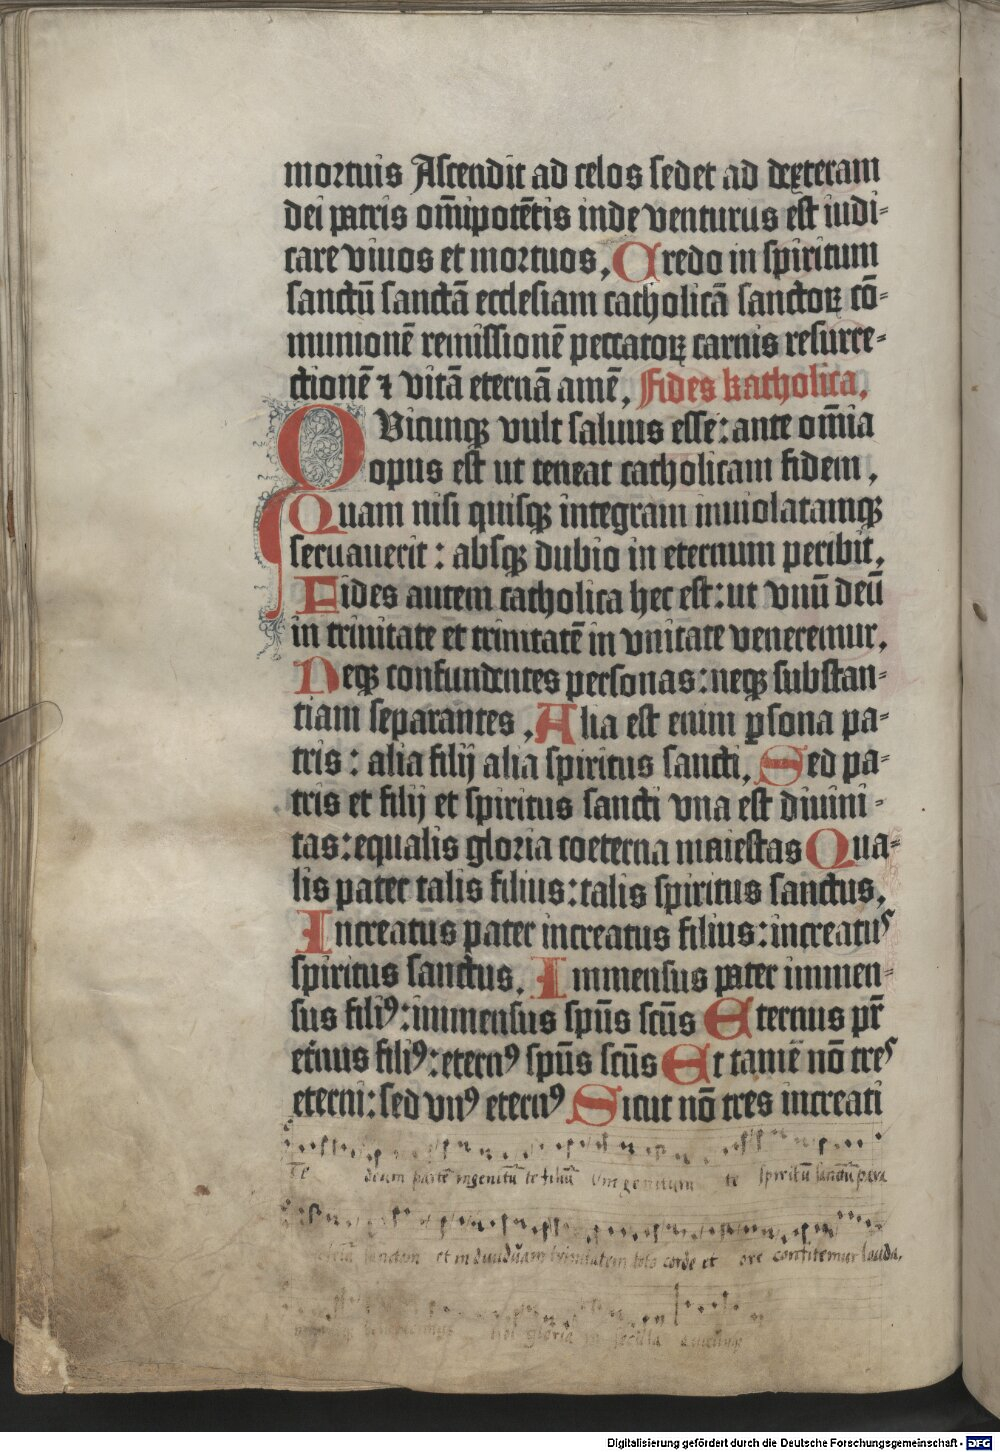 mortuis Ascendit ad celos sedet ad dexteram
dei patris om̄ipotētis inde venturus est iudi-
care viuos et mortuos, Credo in spiritum
sanctū sanctā ecclesiam catholicā sanctoꝝ cō-
munionē remissionē peccatoꝝ carnis resurre-
ctionē ⁊ vitā eternā amē, Fides katholica,
QVicunqꝫ vult saluus esse: ante om̄ia
opus est ut teneat catholicam fidem,
Quam nisi quisqꝫ integram inuiolatamqꝫ
seruauerit: absqꝫ dubio in eternum peribit,
Fides autem catholica hec est: ut vnū deū
in trinitate et trinitatē in vnitate veneremur,
Neqꝫ confundentes personas: neqꝫ substan-
tiam separantes, Alia est enim ꝑsona pa-
tris: alia filij alia spiritus sancti, Sed pa-
tris et filij et spiritus sancti vna est diuini-
tas: equalis gloria coeterna maiestas Qua-
lis pater talis filius: talis spiritus sanctus,
Increatus pater increatus filius: increatus
spiritus sanctus, Immensus pater immen-
sus filiꝰ: immensus spūs scūs Eternus pr̄
et̄nus filiꝰ: eternꝰ spūs scūs Et tamē nō tres
eterni: sed vnꝰ eternꝰ Sicut nō tres increati
Te deum patrē ingenitū te filiū vnigenitum te spiritū sanctū para
sanctam et induiduam trinitatem toto corde et ore confitemur lauda,
tibi gloria in secula
Digitalisierung gefördert durch die Deutsche Forschungsgemeinschaft - DFG